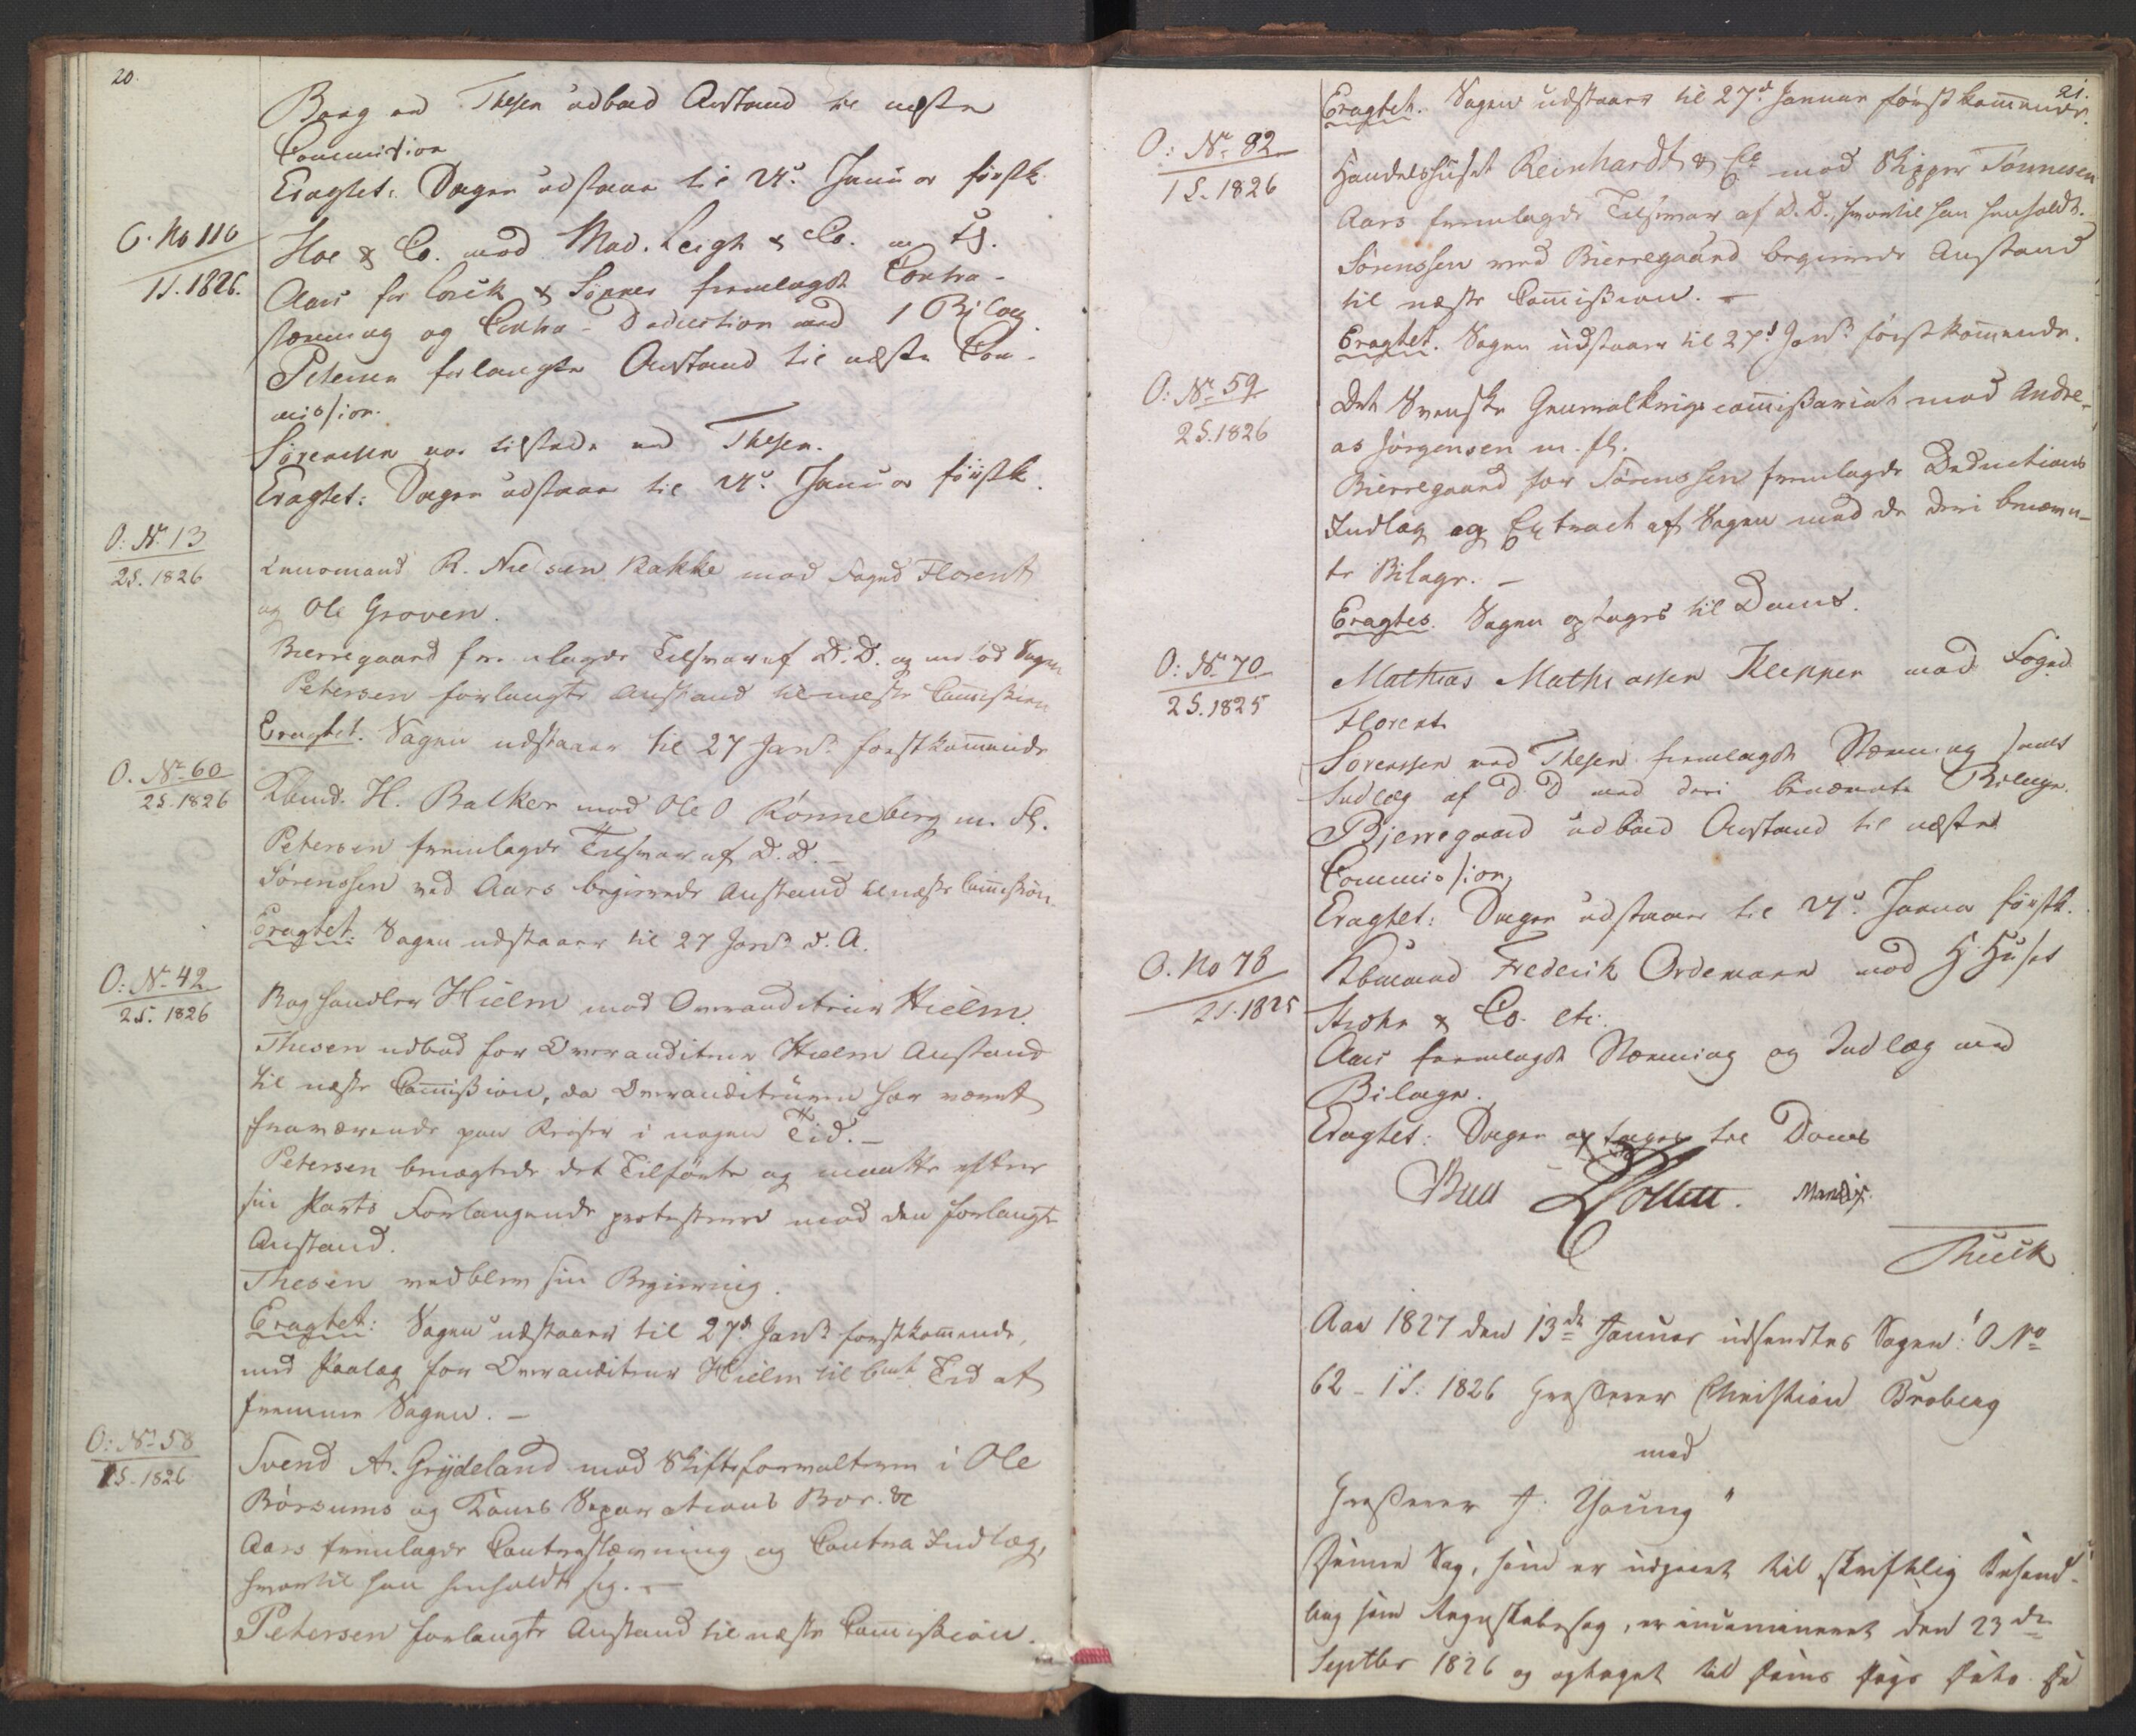 20.
Baag ved Thesen udbad Anstand til næste
Commission
Eragtet: Sagen udstaaer til 27d. Januar førstk.
O. No 110
1S. 1826.
Hoe & Co. mod Mad. Leigh & Co. m fl.
Aars for Lorck & Sønner fremlagde Contra-
stævning og Contra-Deduction med 1 Bilag.
Petersen forlangte Anstand til næste Com-
mission.
Sørenssen var tilstede ved Thesen.
Eragtet: Sagen udstaaer til 27d. Januar førstk.
O: No. 13
2S. 1826
Lensmand R. Nielsen Bakke mod Foged Florent
og Ole Groven.
Bierregaard fremlagde Tilsvar af D. D. og imødtog Sagen
Petersen forlangte Anstand til næste Commission
Eragtet. Sagen udstaaer til 27 Janr. førstkommende
O. No. 60
2S. 1826
Kbmd. H. Balker mod Ole O Rønneberg m. fl.
Petersen fremlagde Tilsvar af D. D. –
Sørenssen ved Aars begierede Anstand til næste Commission.
Eragtet: Sagen udstaaer til 27 Janr. d. A.
O: No. 42
2S. 1826
Boghandler Hielm mod Overauditeur Hielm.
Thesen udbad for Overauditeur Hielm Anstand
til næste Commission, da Overauditeuren har været
fraværende paa Reiser i nogen Tid. –
Petersen benægtede det Tilførte og maatte efter
sin Parts Forlangende protestere mod den forlangte
Anstand.
Thesen vedblev sin Begiering.
Eragtet: Sagen udstaaer til 27d. Janr. førstkommende,
med Paalæg for Overauditeur Hielm til bemt Tid at
fremme Sagen. –
O: No. 58
1S. 1826
Svend A. Grydeland mod Skifteforvalteren i Ole
Børsums og Kones Separations Boe. &c
Aars fremlagde Contrastævning og Contra Indlæg,
hvortil han henholdt sig. –
Petersen forlangte Anstand til næste Commission.
21.
Eragtet. Sagen udstaaer til 27d. Januar førstkommende.
O: No. 82
1S. 1826
Handelshuset Reinhardt & Co mod Skipper Tønnesen
Aars fremlagde Tilsvar af D. D., hvortil han henholdt.
Sørenssen ved Bierregaard begierede Anstand
til næste Commission. –
Eragtet. Sagen udstaaer til 27d. Janr. førstkommende.
O: No. 59
2S. 1826
Det Svenske Generalkrigscommissariat mod Andre-
as Jørgensen m. fl.
Bierregaard for Sørenssen fremlagde Deductions
Indlæg og Extract af Sagen med de deri benævn-
te Bilage. –
Eragtes. Sagen optages til Doms.
O: No. 70
2S. 1825
Mathias Mathiassen Klepper mod Foged
Florent
Sørenssen ved Thesen fremlagde Stævning samt
Indlæg af D. D med deri benævnte Bilage.
Bjerregaard udbad Anstand til næste
Commission,
Eragtet: Sagen udstaaer til 27d. Januar førstk.
O. No 78
2S. 1825
Kbmand Frederik Ordemann mod H Huset
Strohn & Co. etc.
Aars fremlagde Stævning og Indlæg med
Bilage.
Eragtet: Sagen optages til Doms
Bull Collett. Mandix.
Thieik
Aar 1827 den 13de Januar udsendtes Sagen: O No
62 – 1S. 1826 Grosserer Christian Broberg
mod
Grosserer J. Young "
Denne Sag, som er udgivet til skriftlig Behand-
ling som Regnskabssag, er incamineret den 23de
Septbr 1826 og optaget til Doms